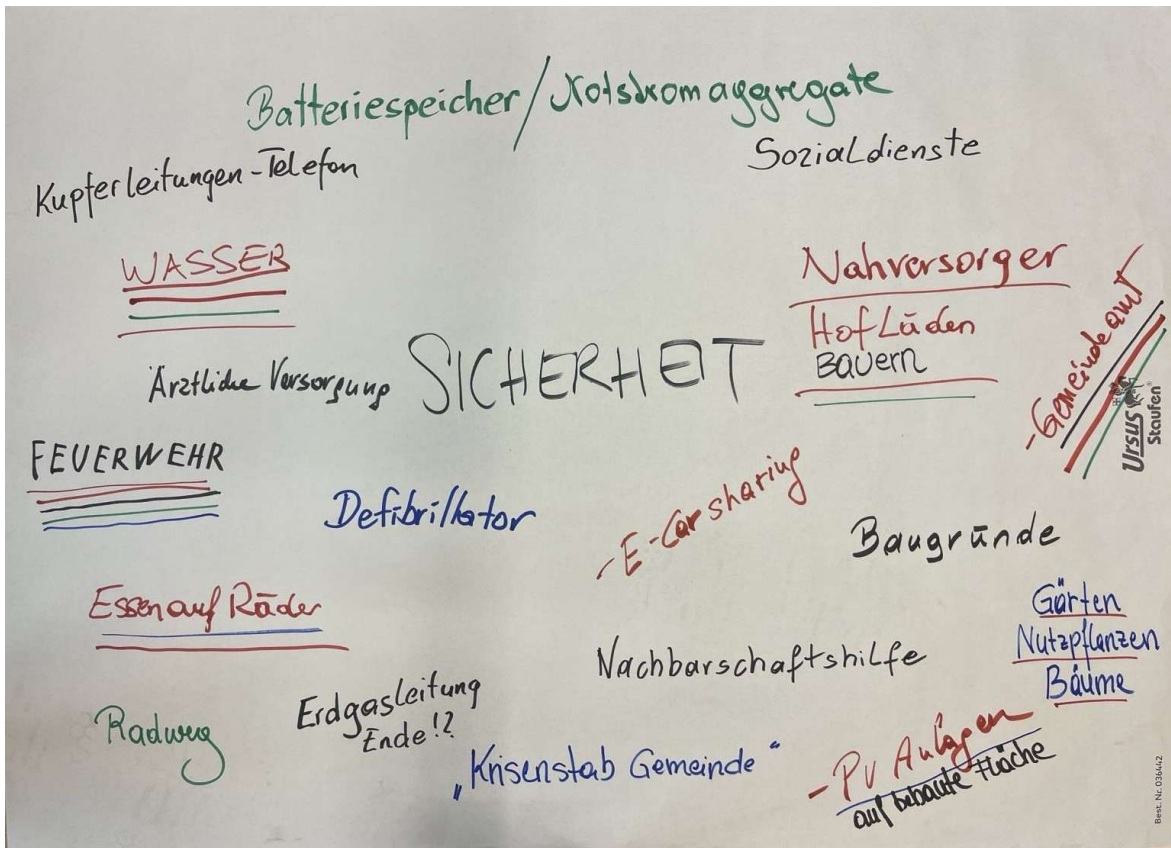 Batteriespeicher/Notstromaggregate
Sozialdienste
Kupferleitungen-Telefon
WASSER
Nahversorger
Hofläden
Bauern
-Gemeindeamt
Ärztliche Versorgung
SICHERHEIT
Ursus
Staufen
FEUERWEHR
Defibrillator
-E-Carsharing
Baugründe
Essen auf Räder
Gärten
Nutzpflanzen
Bäume
Nachbarschaftshilfe
Erdgasleitung
Ende!?
Radweg
„Krisenstab Gemeinde“
-PV Anlagen
auf bebaute Fläche
Best. Nr. 036442